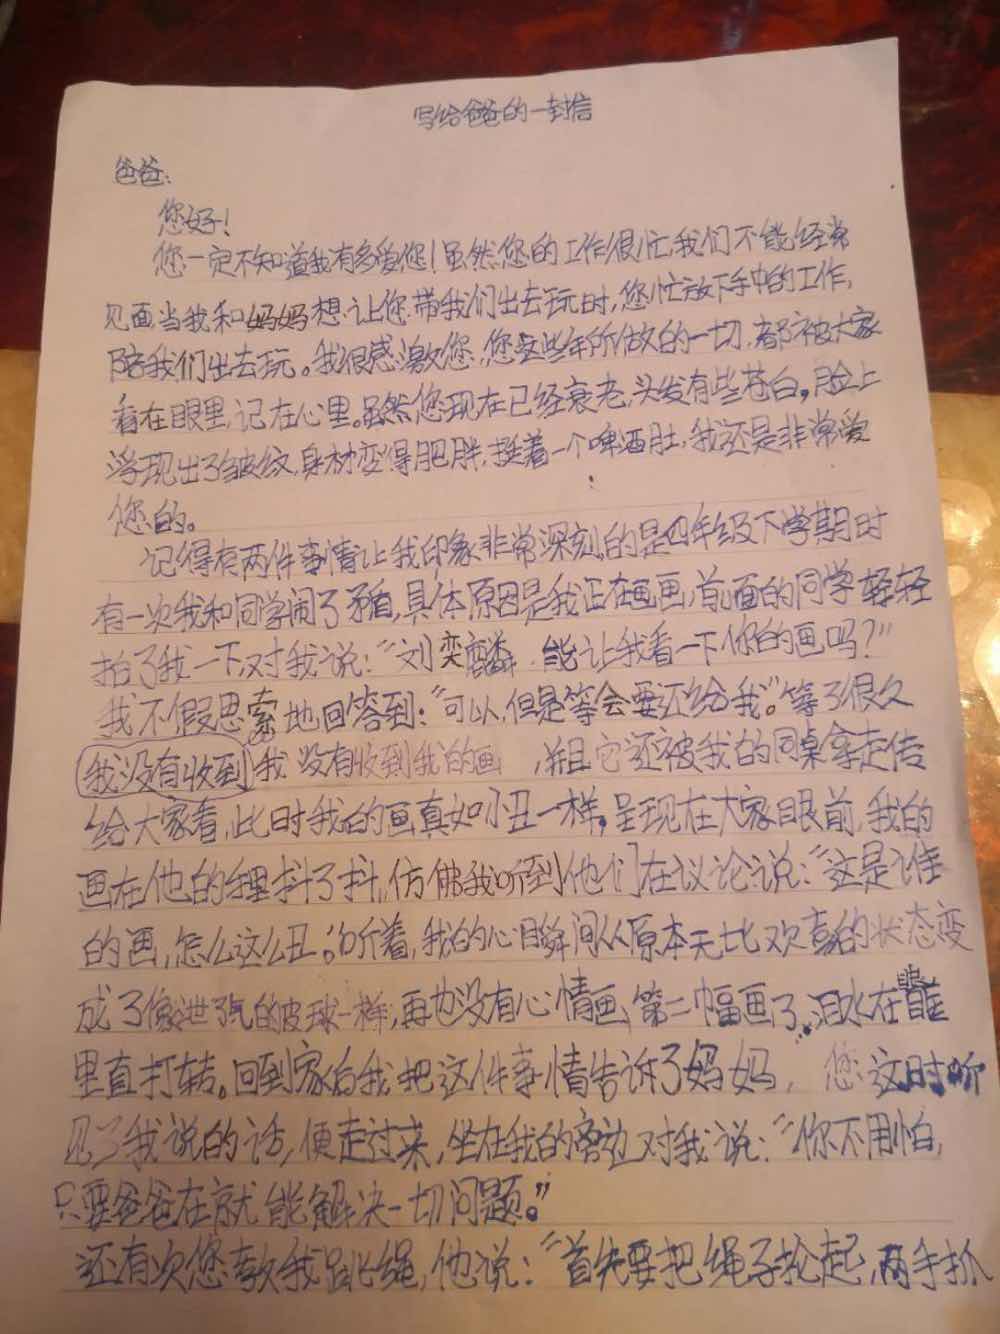 写给爸爸的一封信
爸爸：
您好！
您一定不知道我有多爱您！虽然您的工作很忙,我们不能经常
见面当我和妈妈想让您带我们出去玩时,您忙放下手中的工作,
陪我们出去玩。我很感激您,您这些年所做的一切,都被大家
看在眼里,记在心里。虽然您现在已经衰老,头发有些苍白。脸上
浮现出了皱纹,身材变得肥胖,挺着一个啤酒肚,我还是非常爱
您的。
记得有两件事情让我印象非常深刻的是四年级下学期时
有一次我和同学闹了矛盾,具体原因是我正在画画,前面的同学轻轻
拍了我一下对我说：“刘奕麟,能让我看一下你的画吗？”
我不假思索地回答到：“可以,但是等会要还给我。”等了很久
我没有收到我没有收到我的画,并且它还被我的同桌拿走传
给大家看,此时我的画真如小丑一样。呈现在大家眼前,我的
画在他的手里抖了抖,仿佛我听到他们在议论说：“这是谁
的画,怎么这么丑。”听着,我的心目瞬间从原本无比欢喜的状态变
成了像泄了气的皮球一样,再也没有心情画第二幅画了,泪水在眼眶
里直打转。回到家后我把这件事情告诉了妈妈,您这时听
见了我说的话,便走过来,坐在我的旁边对我说：“你不用怕,
只要爸爸在就能解决一切问题。”
还有次您教我跳绳,他说：“首先要把绳子抡起,两手抓